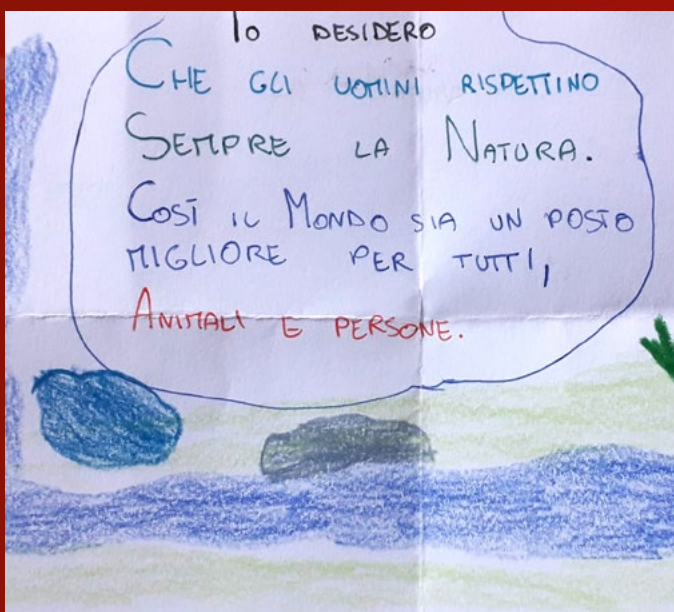 Io DESIDERO
CHE GLI UOMINI RISPETTINO
SEMPRE LA NATURA.
COSÌ IL MONDO SIA UN POSTO
MIGLIORE PER TUTTI,
ANIMALI E PERSONE.